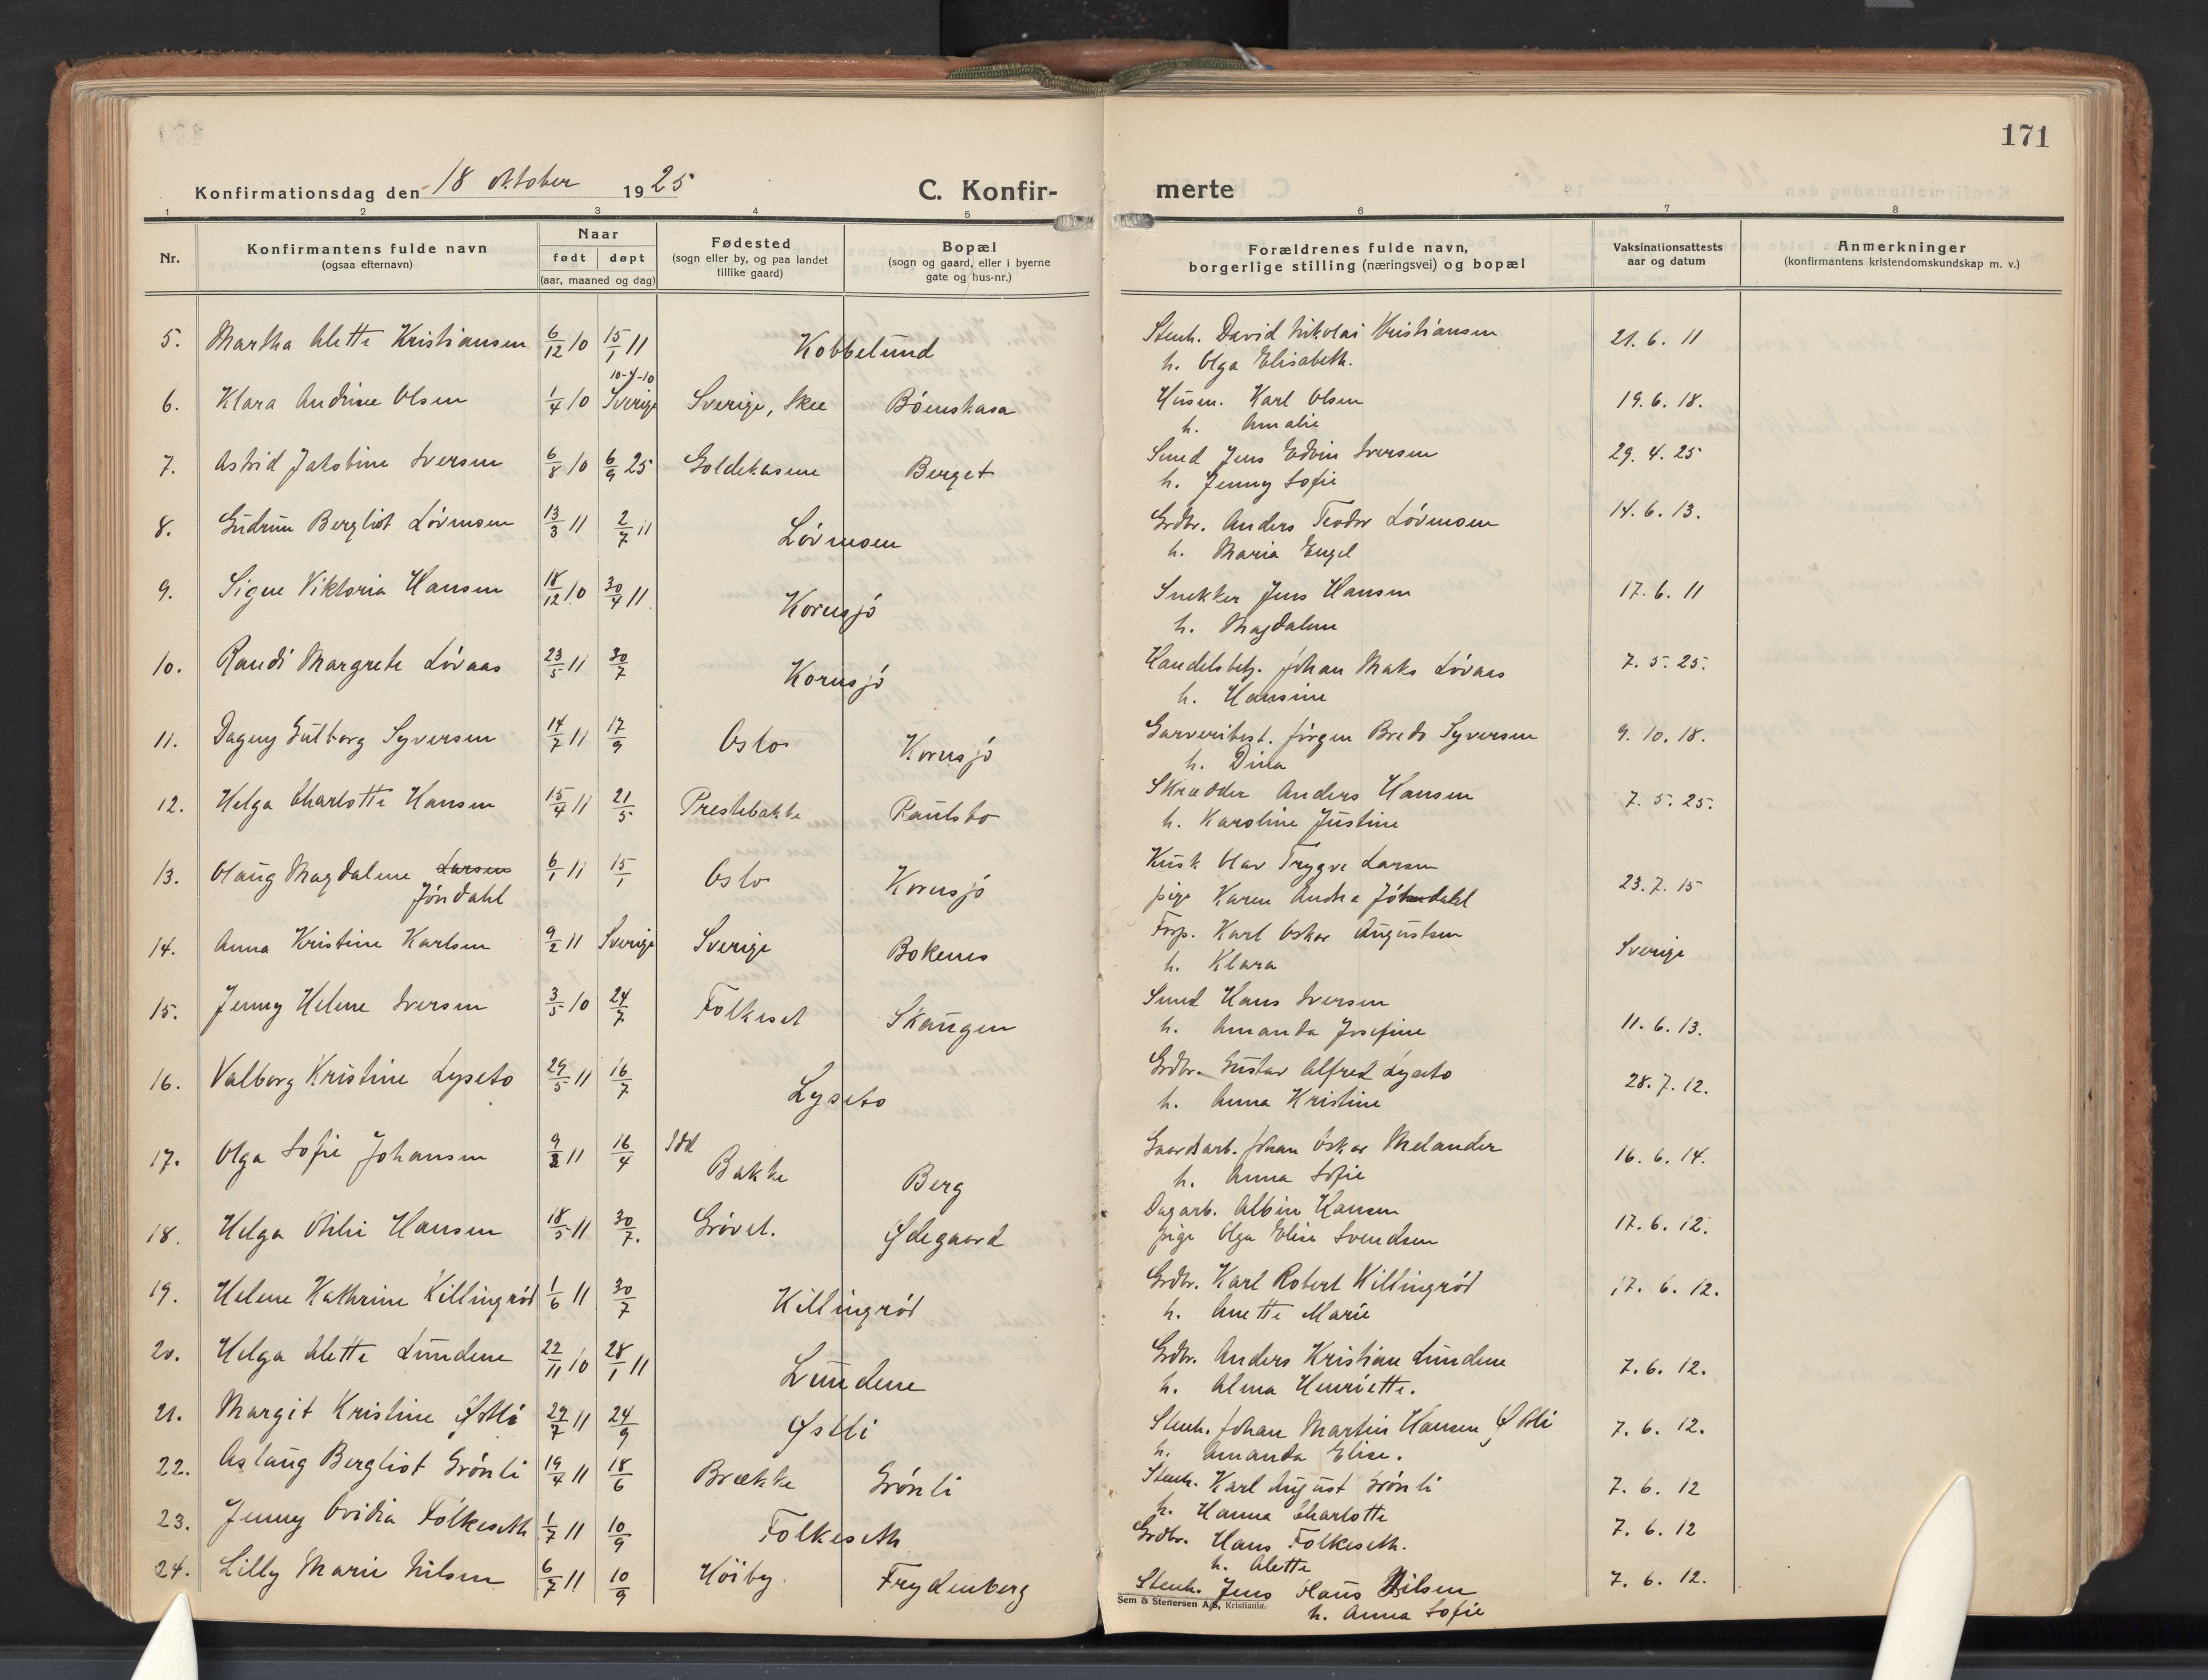 171
Konfirmationsdag den 18 oktober 1925
C. Konfir-
merte
1 2 3 4 5 6 7 8
Nr.
Konfirmantens fulde navn
(ogsaa efternavn)
Naar
født døpt
(aar, maaned og dag)
Fødested
(sogn eller by, og paa landet
tillike gaard)
Bopæl
(sogn og gaard, eller i byerne
gate og hus-nr.)
Forældrenes fulde navn,
borgerlige stilling (næringsvei) og bopæl
Vaksinationsattests
aar og datum
Anmerkninger
(konfirmantens kristendomskundskap m. v.)
5. Martha Alette Kristiansen 6/12 10 15/1 11 Kobbelund Stenh. David Nikolai Kristiansen 21. 6. 11
h. Olga Elisabeth.
10-4-10
6. Klara Andrine Olsen 1/4 10 Sverige Sverige, Skee Bönskasa Husm. Karl Olsen 19. 6. 18.
h. Amalie
7. Astrid Jakobine Iversen 6/8 10 6/9 25 Goldekasene Berget Smed Jens Edvin Iversen 29. 4. 25
h. Jenny Sofie
8. Gudrun Bergliot Lövmoen 13/3 11 2/7 11 Lövmoen Grdbr. Anders Teodor Lövmoen 14. 6. 13.
h. Maria Engel
9. Signe Viktoria Hansen 18/12 10 30/4 11 Kornsjö Snekker Jens Hansen 17. 6. 11
h. Magdalene
10. Randi Margrete Lövaas 23/5 11 30/7 Kornsjö Handelsbetj. Johan Maks Lövaas 7. 5. 25.
h. Hansine
11. Dagny Gulborg Syversen 14/7 11 17/9 Oslo Kornsjö Garveribest. Jörgen Bredo Syversen 9. 10. 18.
h. Dina
12. Helga Charlotte Hansen 15/4 11 21/5 Prestebakke Raulsbo Skrædder Anders Hansen 7. 5. 25.
h. Karoline Justine
13. Olaug Magdalene Larsen 6/1 11 15/1 Oslo Kornsjö Kusk Olav Trygve Larsen 23. 7. 15
Jöndahl pige Karen Andrea Jöhndahl
14. Anna Kristine Karlsen 9/2 11 Sverige Sverige Bokenes Forp. Karl Oskar Augustsen Sverige
h. Klara
15. Jenny Helene Iversen 3/5 10 24/7 Folkeset Skaugen Smed Hans Iversen 11. 6. 13.
h. Amanda Josefine
16. Valborg Kristine Lyseto 29/5 11 16/7 Lyseto Grdbr. Gustav Alfred Lyseto 28. 7. 12.
h. Anna Kristine
17. Olga Sofie Johansen 9/2 11 16/4 Idd Bakke Berg Gaardsarb. Johan Oskar Melander 16. 6. 14.
h. Anna Sofie
18. Helga Otilie Hansen 18/5 11 30/7. Grövet. Ødegaard Dagarb. Albin Hansen 17. 6. 12.
pige Olga Elise Svendsen
19. Helene Kathrine Killingröd 1/6 11 30/7 Killingröd Grdbr. Karl Robert Killingröd 17. 6. 12.
h. Anette Marie
20. Helga Alette Lundene 22/11 10 28/1 11 Lundene Grdbr. Anders Kristian Lundene 7. 6. 12.
h. Alma Henriette.
21. Margit Kristine Østli 29/7 11 24/9 Østli Stenh. Johan Martin Hansen Østli 7. 6. 12.
h. Amanda Elise.
22. Aslaug Bergliot Grönli 19/4 11 18/6 Brække Grönli Stenh. Karl August Grönli 7. 6. 12
h. Hanna Charlotte
23. Jenny Ovidia Folkeseth 1/7 11 10/9 Folkeseth Grdbr. Hans Folkeseth. 7. 6. 12
h. Alette
24. Lilly Marie Nilsen 6/7 11 10/9 Höiby Frydenberg Stenh. Jens Hans Nilsen 7. 6. 12.
h. Anna Sofie
Sem & Stenersen A/S, Kristiania.